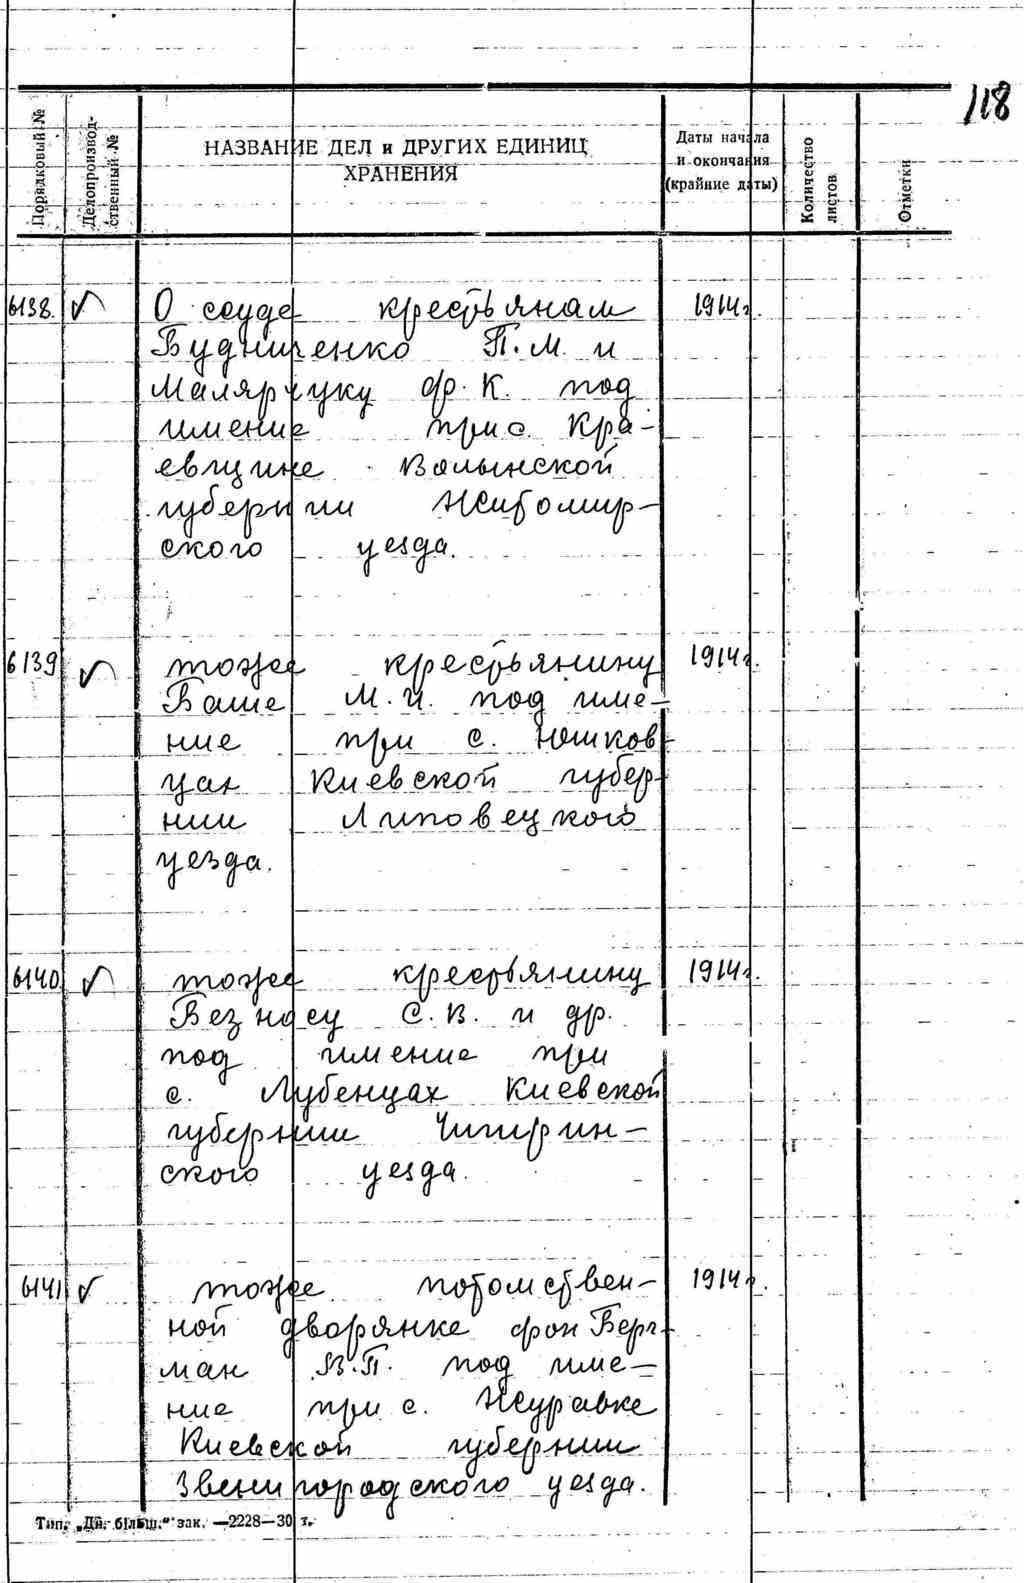 118
Порядковый №
Делопроизвод-
ственный №
НАЗВАНИЕ ДЕЛ и ДРУГИХ ЕДИНИЦ
ХРАНЕНИЯ
Даты начала
и окончания
(крайние даты)
Количество
листов
Отметки
6138. О ссуде крестьянам 1914г.
Будниченко П.М. и
Малярчуку Ф.К. под
имение при с. Кра-
евщине Волынской
губернии Житомир-
ского уезда.
6139 тоже крестьянину 1914г.
Баше М.И. под име-
ние при с. Юшков-
цах Киевской губер-
нии Липовецкого
уезда.
6140 тоже крестьянину 1914г.
Безносу С.В. и др.
под имение при
с. Лубенцах Киевской
губернии Чигирин-
ского уезда.
6141 тоже потомствен- 1914г.
ной дворянке фон Берг-
ман В.П. под име-
ние при с. Журавке
Киевской губернии
Звенигородского уезда.
Тип. „Дн. більш." зак. —2228—30 т.